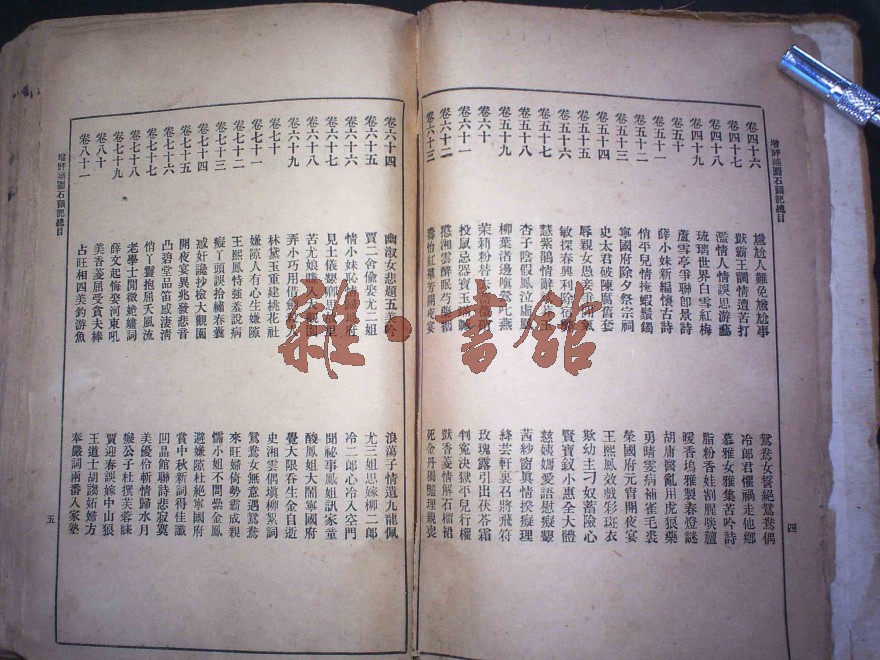 增評補圖石頭記總目
卷四十六 尷尬人難免尷尬事 鴛鴦女誓絕鴛鴦偶
卷四十七 獃霸王調情遭苦打 冷郎君懼禍走他鄉
卷四十八 濫情人情誤思游藝 慕雅女雅集苦吟詩
卷四十九 琉璃世界白雪紅梅 脂粉香娃割腥啖膻
卷五十 蘆雪亭爭聯卽景詩 暖香塢雅製春燈謎
卷五十一 薛小妹新編懷古詩 胡庸醫亂用虎狼藥
卷五十二 俏平兒情掩蝦鬚鐲 勇晴雯病補雀毛裘
卷五十三 寧國府除夕祭宗祠 榮國府元宵開夜宴
卷五十四 史太君破陳腐舊套 王熙鳳效戲彩斑衣
卷五十五 辱親女愚妾爭閒氣 欺幼主刁奴蓄險心
卷五十六 敏探春興利除宿弊 賢寶釵小惠全大體
卷五十七 慧紫鵑情辭試莽玉 慈姨媽愛語慰癡顰
卷五十八 杏子陰假鳳泣虛凰 茜紗窗眞情揆癡理
卷五十九 柳葉渚邊嗔鶯叱燕 絳芸軒裏召將飛符
卷六十 茉莉粉替去薔薇硝 玫瑰露引出茯苓霜
卷六十一 投鼠忌器寶玉瞞贓 判冤決獄平兒行權
卷六十二 憨湘雲醉眠芍藥裀 獃香菱情解石榴裙
卷六十三 壽怡紅羣芳開夜宴 死金丹獨豔理親喪
四
卷六十四 幽淑女悲題五美吟 浪蕩子情遺九龍佩
卷六十五 賈二舍偷娶尤二姐 尤三姐思嫁柳二郎
卷六十六 情小妹恥情歸地府 冷二郎心冷入空門
卷六十七 見土儀顰卿思故里 聞祕事鳳姐訊家童
卷六十八 苦尤娘賺入大觀園 酸鳳姐大鬧寧國府
卷六十九 弄小巧用借劍殺人 覺大限吞生金自逝
卷七十 林黛玉重建桃花社 史湘雲偶塡柳絮詞
卷七十一 嫌隙人有心生嫌隙 鴛鴦女無意遇鴛鴦
卷七十二 王熙鳳恃強羞說病 來旺婦倚勢霸成親
卷七十三 癡丫頭誤拾繡春囊 懦小姐不問纍金鳳
卷七十四 惑奸讒抄檢大觀園 避嫌隙杜絕寧國府
卷七十五 開夜宴異兆發悲音 賞中秋新詞得佳讖
卷七十六 凸碧堂品笛感淒淸 凹晶館聯詩悲寂寞
卷七十七 俏丫鬟抱屈夭風流 美優伶斬情歸水月
卷七十八 老學士閒徵姽嫿詞 癡公子杜撰芙蓉誄
卷七十九 薛文起悔娶河東吼 賈迎春誤嫁中山狼
卷八十 美香菱屈受貪夫棒 王道士胡謅妒婦方
卷八十一 占旺相四美釣游魚 奉嚴詞兩番入家塾
增評補圖石頭記總目
五
雜·書館